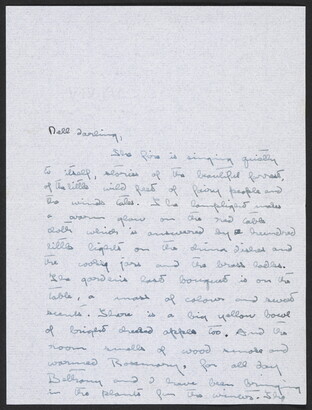 Nell darling,
The fire is singing quietly
to itself, stories of the beautiful forest,
of the little wild feet of fairy people and
the winds tales. The lamplight makes
a warm glow on the red table
cloth which is answered by a hundred
little lights on the china dishes and
the cooky jars and the brass ladles.
The garden's last bouquet is on the
table, a mass of colour and sweet
scents. There is a big yellow bowl
of bright apples too. And the
room smells of wood smoke and
warmed Rosemary, for all day
and I have been bringing
in the plants for the winter. The